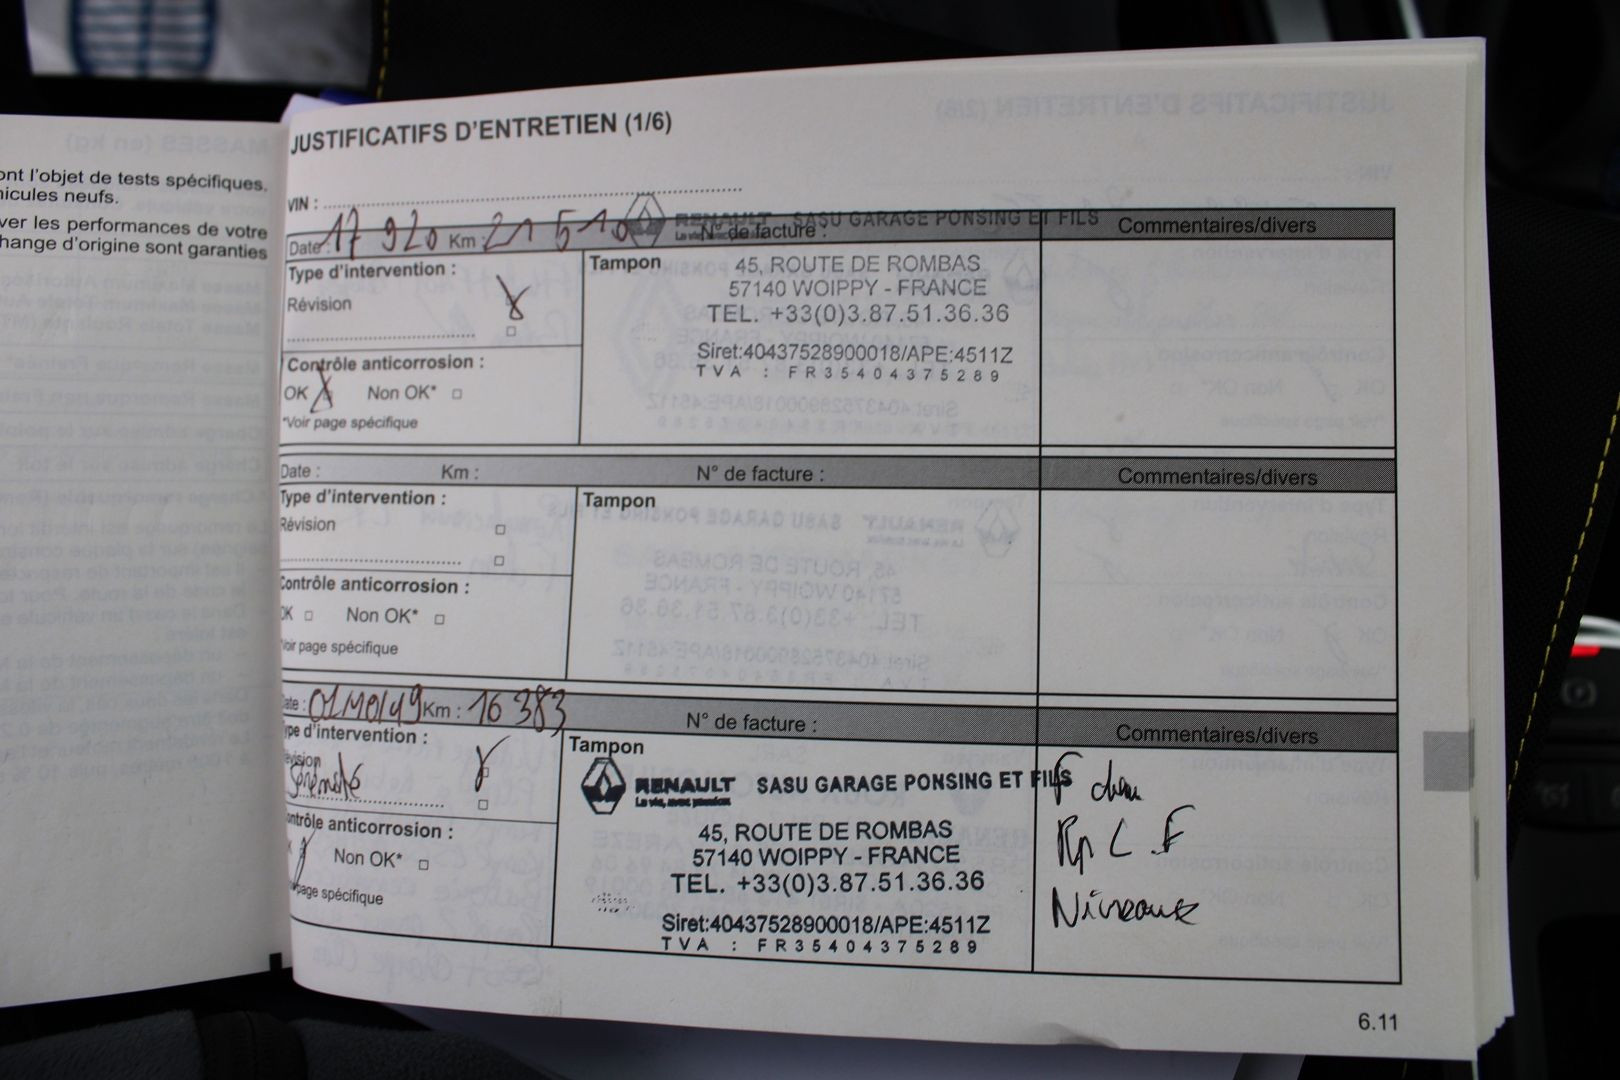 ont l'objet de tests spécifiques,
icules neufs.
ver les performances de votre
hange d'origine sont garanties
JUSTIFICATIFS D'ENTRETIEN (1/6)
VIN :
Date : 17 9 20 Km : 21 510 N° de facture : Commentaires/divers
RENAULT SASU GARAGE PONSING ET FILS
Type d'intervention :
Révision
Contrôle anticorrosion :
OK Non OK*
*Voir page spécifique
Tampon
45, ROUTE DE ROMBAS
57140 WOIPPY - FRANCE
TEL. +33(0)3.87.51.36.36
Siret:40437528900018/APE:4511Z
TVA : FR35404375289
Date : Km : N° de facture : Commentaires/divers
Type d'intervention :
Révision
Contrôle anticorrosion :
OK Non OK*
*Voir page spécifique
Tampon
ate : Km : 16 383 N° de facture : Commentaires/divers
ype d'intervention :
évision
Sérénité
ontrôle anticorrosion :
K Non OK*
page spécifique
Tampon
RENAULT SASU GARAGE PONSING ET FILS
La vie, avec passion
45, ROUTE DE ROMBAS
57140 WOIPPY - FRANCE
TEL. +33(0)3.87.51.36.36
Siret:40437528900018/APE:4511Z
TVA : FR35404375289
Niveaux
6.11